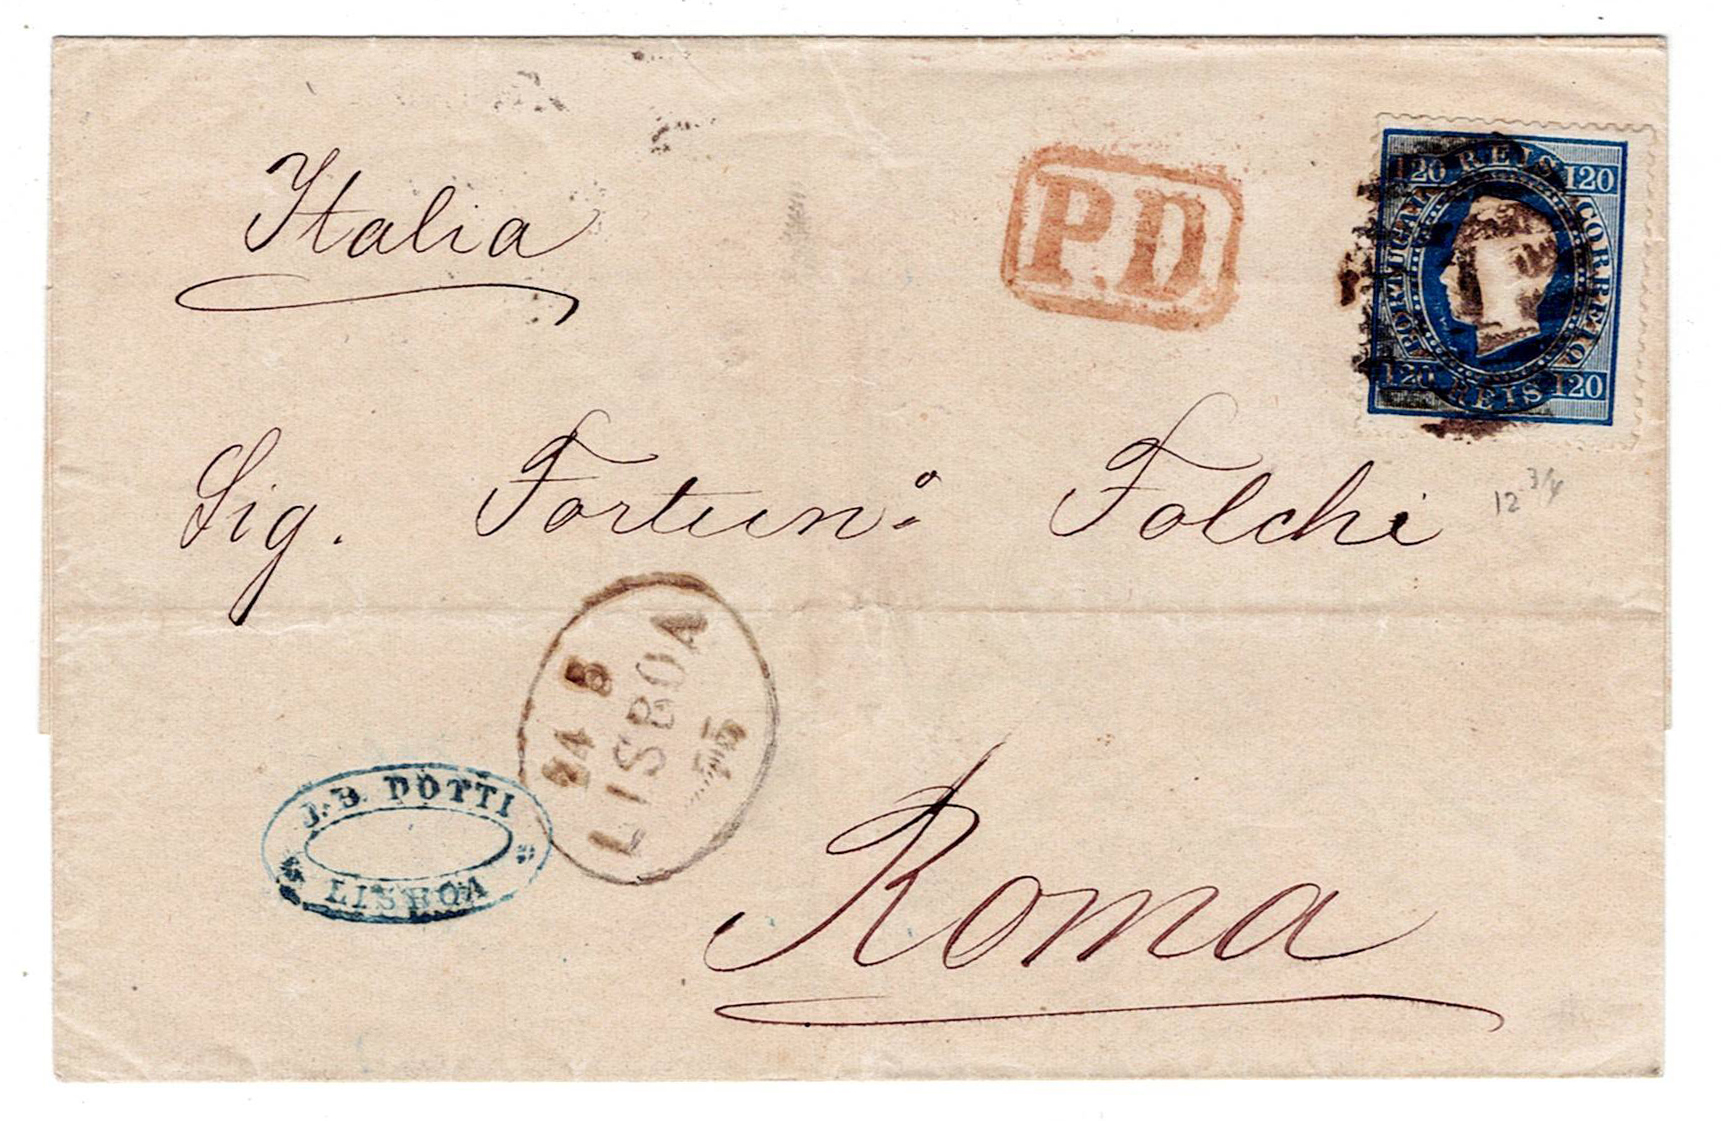 Italia
P.D.
120 REIS 120
PORTUGAL
CORREIO
120 REIS 120
Sig. Fortun.º Folchi
12 3/4
24 5
LISBOA
75
J. B. DOTTI
LISBOA
Roma